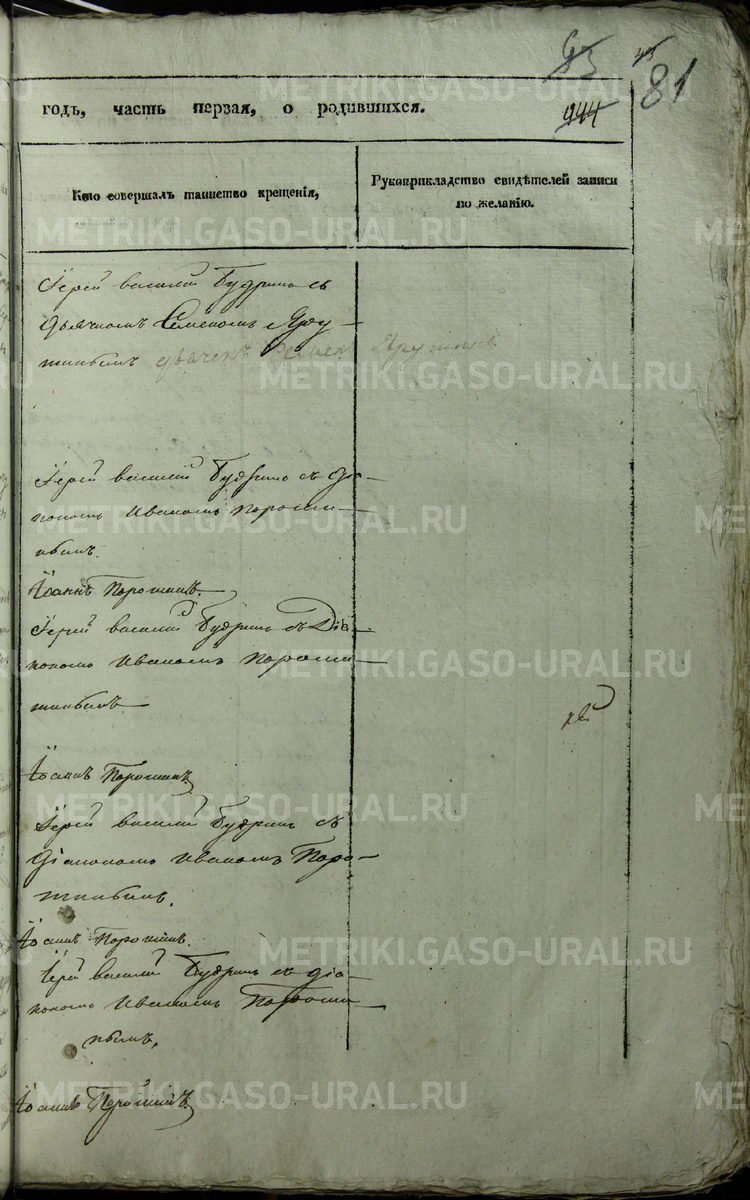 83
45
81
944
годъ, часть первая, о родившихся.
Кто совершалъ таинство крещенія,
Рукоприкладство свидѣтелей записи
по желанію.
Іерей василій Будринъ съ
дьячкомъ Семеномъ
дьячекъ Семенъ
Іерей василій Будринъ съ діа-
кономъ Иваномъ Пороши-
нымъ.
Іоаннъ Порошинъ.
Іерей василій Будринъ съ Діа-
кономъ Иваномъ Пороши-
нымъ.
Іоаннъ Порошинъ
Іерей василій Будринъ съ
діакономъ Иваномъ Поро-
шинымъ.
Іоаннъ Порошинъ.
Іерей василій Будринъ съ діа-
кономъ Иваномъ Пороши-
нымъ.
Іоаннъ Порошинъ
METRIKI.GASO-URAL.RU